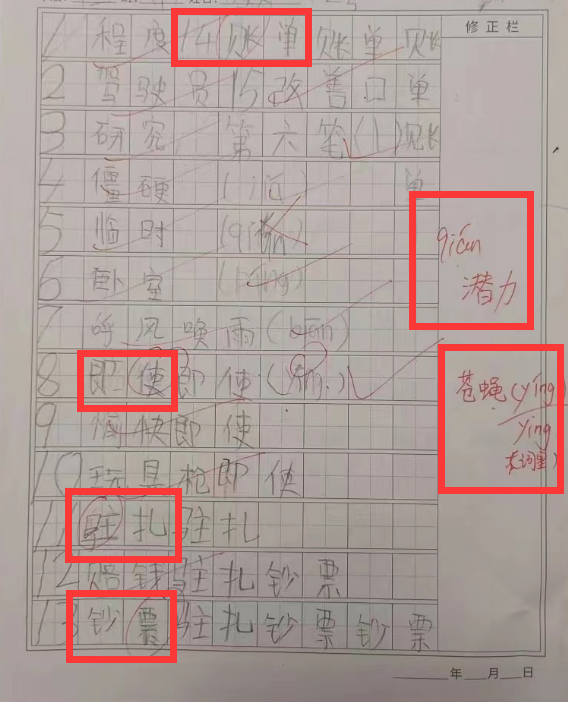 修正栏
1 程度 14 账单 账单 账
2 驾驶员 15 改善 口 单
3 研究 第六笔(1) 账
4 僵硬 单
5 临时
qián
6 卧室
潜力
7 呼风唤雨
8 即使 即使
苍蝇(yíng)
9 愉快 即使
ying
10 玩具枪 即使
11 驻扎 驻扎
12 赔钱 驻扎 钞票
13 钞票 驻扎 钞票 钞票
年 月 日